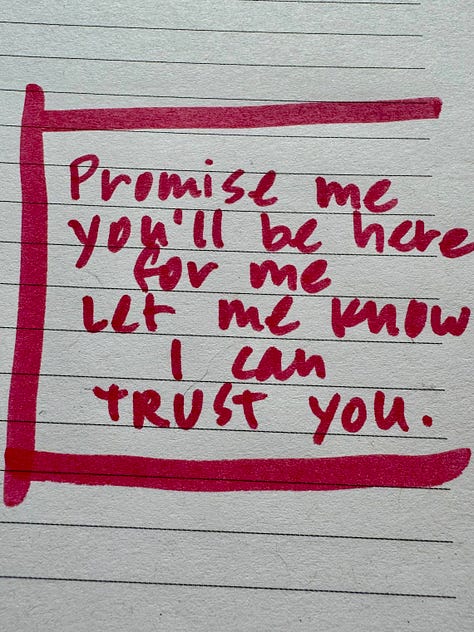 Promise me
you'll be here
for me
Let me know
I can
TRUST you.